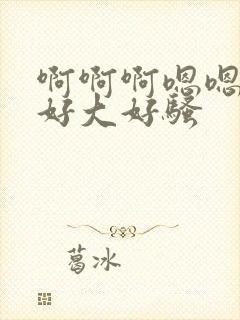 啊啊啊嗯嗯
好大好骚
葛冰